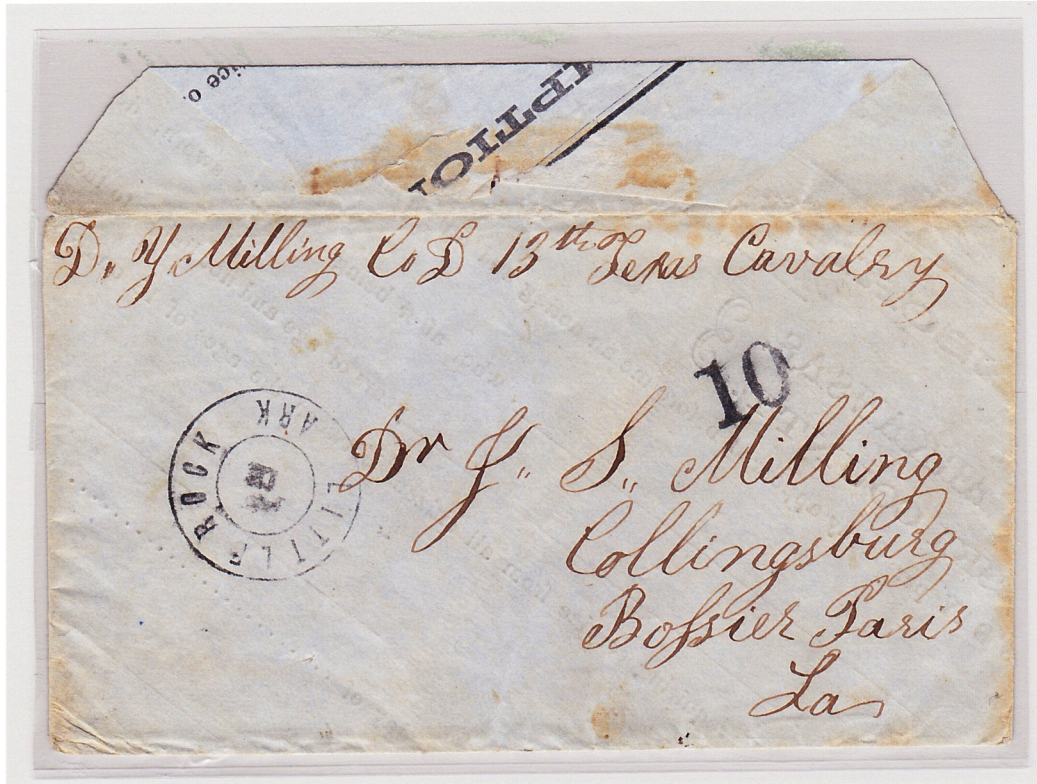 PTION
D. Y. Milling Co D 13th Texas Cavalry
10
LITTLE ROCK ARK
Dr J. S. Milling
Collingsburg
Bossier Paris
La